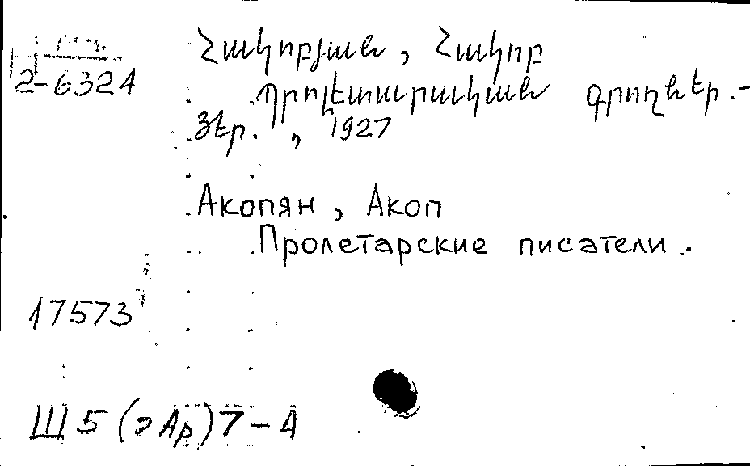 2-6324
Հակոբյան, Հակոբ
Պրոլետարական գրողներ.-
Յեր., 1927
Акопян, Акоп
Пролетарские писатели.
17573
Ш5(2Ар)7-4